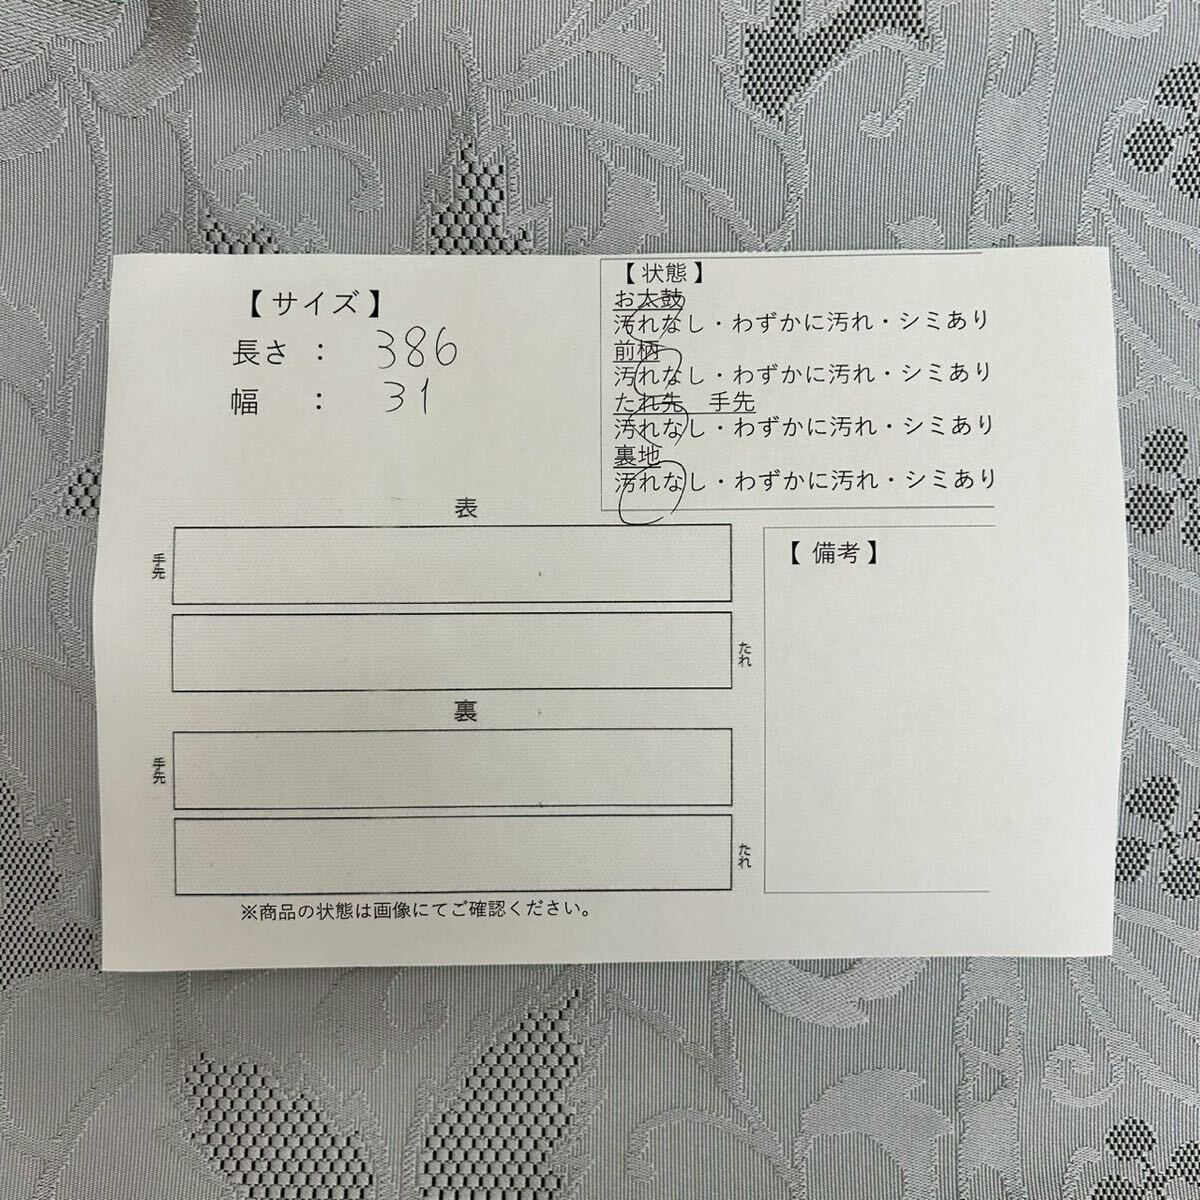 【サイズ】
長さ : 386
幅 : 31
【状態】
お太鼓
汚れなし・わずかに汚れ・シミあり
前柄
汚れなし・わずかに汚れ・シミあり
たれ先 手先
汚れなし・わずかに汚れ・シミあり
裏地
汚れなし・わずかに汚れ・シミあり
表
手先
たれ
裏
手先
たれ
【備考】
※商品の状態は画像にてご確認ください。